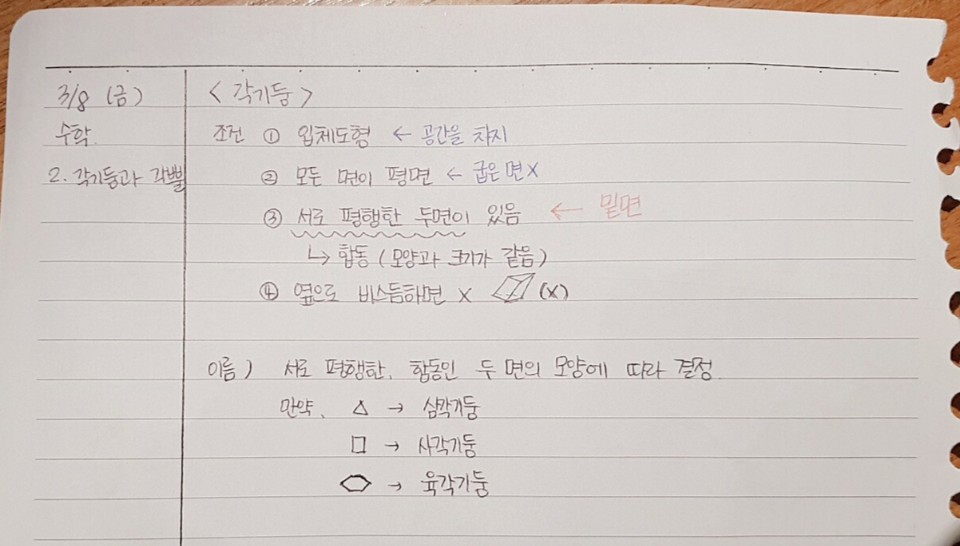 3/8 (금)
<각기둥>
수학.
조건 ① 입체도형 ← 공간을 차지
2. 각기둥과 각뿔
② 모든 면이 평면 ← 굽은 면 X
③ 서로 평행한 두면이 있음 ← 밑면
↳ 합동 (모양과 크기가 같음)
④ 옆으로 비스듬하면 X (X)
이름) 서로 평행한, 합동인 두 면의 모양에 따라 결정.
만약, △ → 삼각기둥
□ → 사각기둥
→ 육각기둥